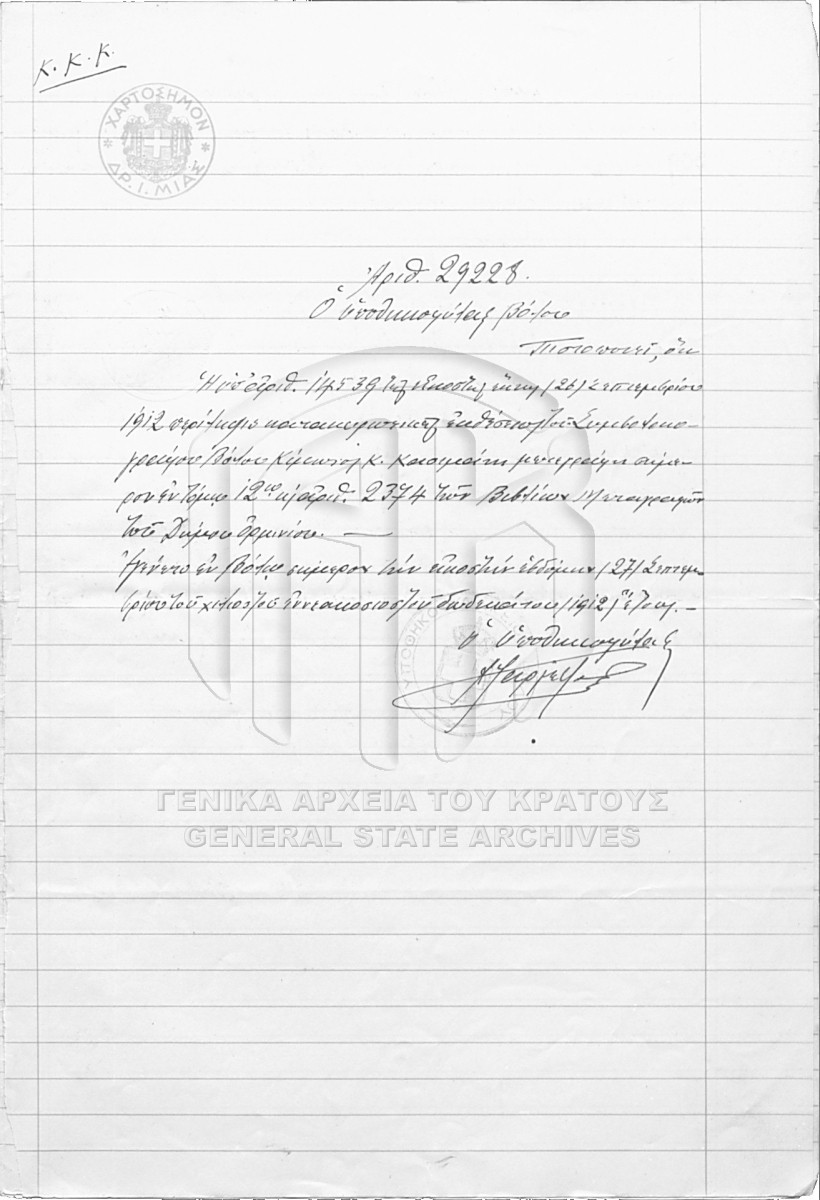 Κ. Κ. Κ.
ΧΑΡΤΟΣΗΜΟΝ
ΔΡ. Ι. ΜΙΑΣ
Ἀριθ. 29228.
Ὁ Ὑποθηκοφύλαξ Βόλου
Πιστοποιεῖ, ὅτι
Ἡ ὑπ' ἀριθ. 14539 τῆς εἰκοστῆς ἕκτης (26) Σεπτεμβρίου
1912 περίληψις κατακυρωτικῆς ἐκθέσεως τοῦ Συμβολαιο-
γράφου Βόλου Κίμωνος Κ. μετεγράφη σήμε-
ρον ἐν τόμῳ 12ῳ κ ἀριθ. 2374 τῶν Βιβλίων Μεταγραφῶν
τοῦ Δήμου Ὀρμινίου. —
Ἐγένετο ἐν Βόλῳ σήμερον τὴν εἰκοστὴν ἑβδόμην (27) Σεπτεμ-
βρίου τοῦ χιλιοστοῦ ἐννεακοσιοστοῦ δωδεκάτου (1912) ἔτους. —
Ὁ Ὑποθηκοφύλαξ
ΓΕΝΙΚΑ ΑΡΧΕΙΑ ΤΟΥ ΚΡΑΤΟΥΣ
GENERAL STATE ARCHIVES